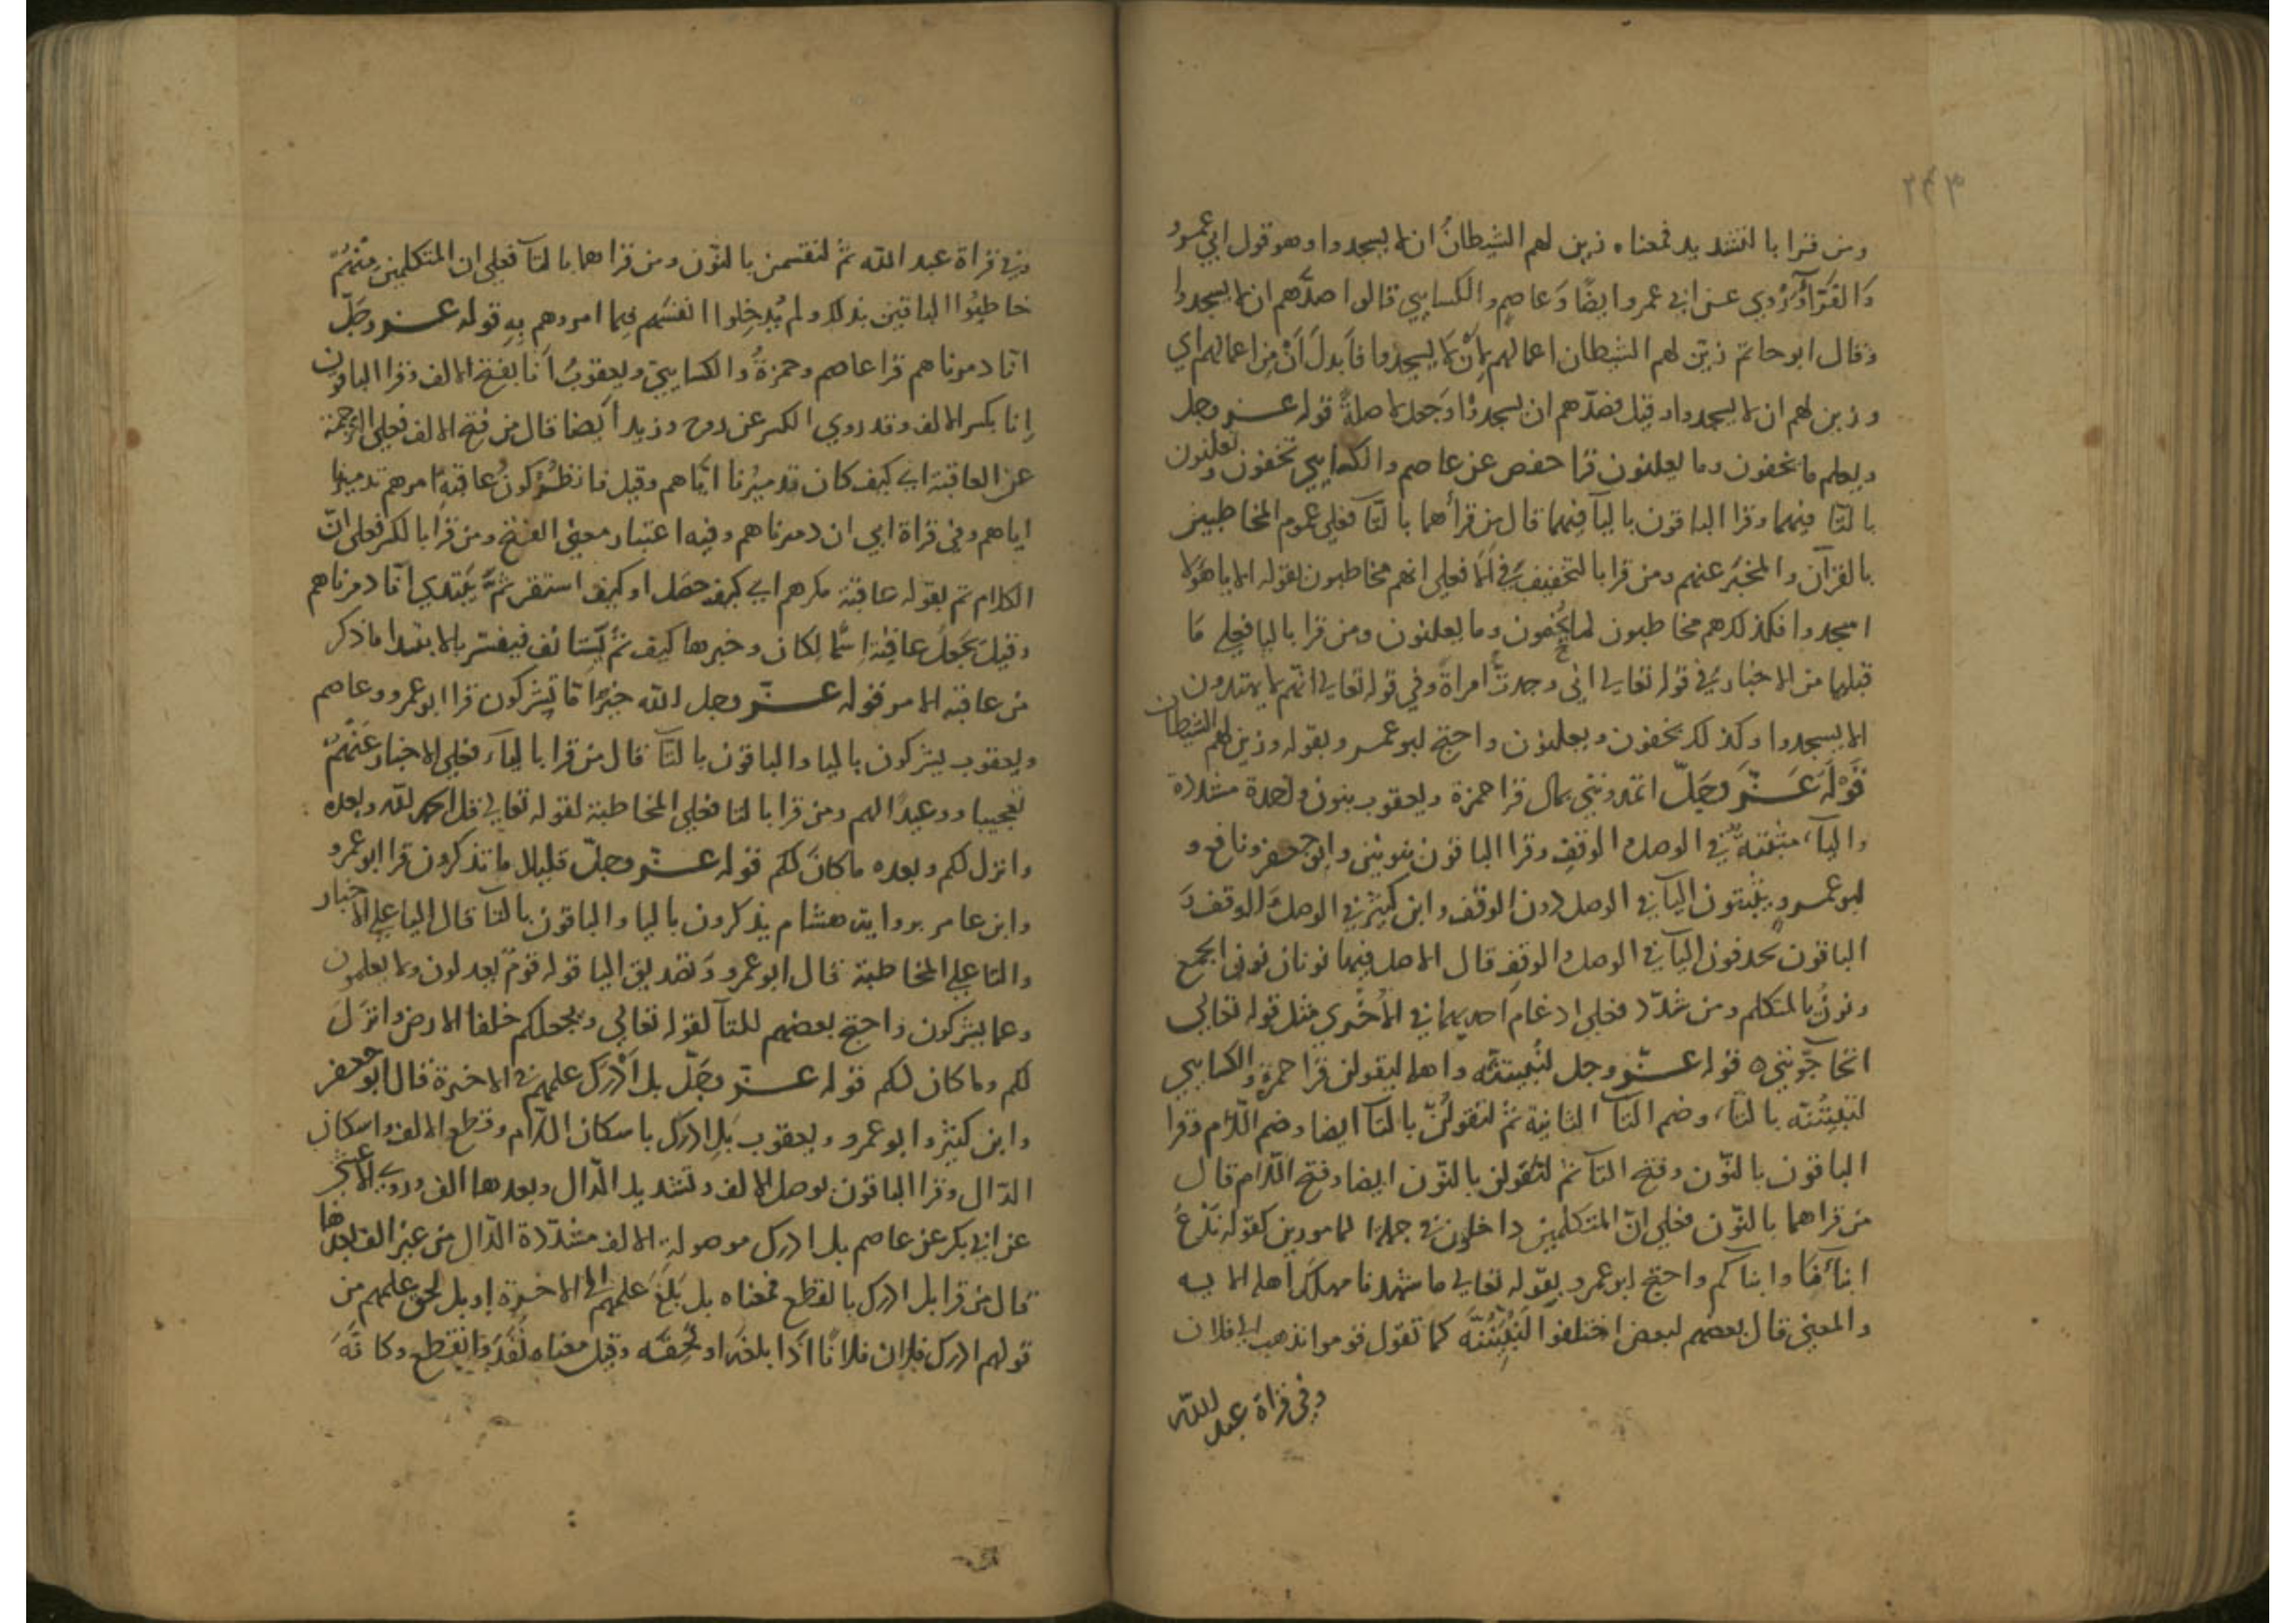 ٢٤٣
ومن قرا بالتشديد فمعناه زين لهم الشيطانُ ان لا يسجدوا وهو قول ابي عمرو
وَالفَرّآوَرُوي عن ابي عمرو ايضًا وَعاصم والكسايي قالوا صدَّهم ان لا يسجدوا
وقال ابو حاتم زيّن لهم الشيطان اعمالهم بِأنْ لا يسجدوا فاَبدلَ اَنْ مِن اعمالهم اي
وزين لهم ان لا يسجدوا وقيل فصدّهم ان يسجدوْا وَجعل لا صلةً قوله عز وجل
ويعلم ما تخفون وما يعلنون قرا حفص عن عاصم والكسايي تخفون وتعلنون
بالتّا فيهما وقرا الباقون باليآ فيهما قال من قرأهما بالتّآ فعلى عموم المخاطبين
بالقرآن والمخبَر عنهم ومن قرا بالتخفيف في اَلَا فعلى انهم مخاطبون لقوله الا يا هؤلا
اسجدوا فكذلك هم مخاطبون لما يُخفون وما يعلنون ومن قرا باليا فعلى مَا
قبلهما من الاخبار في قوله تعالى اني وجدتُّ امراةً وفي قوله تعالى انهم لا يهتدون
الا يسجدوا وكذلك يخفون ويعلنون واحتج ابو عمرو بقوله وزين لهم الشيطان
قَوْلهُ عَزَّ وجَلّ اتمدونني بمال قرا حمزة ويعقوب بنون واحدة مشدّدة
واليآء مثبَتة في الوصل والوقف وقرا الباقون بنونين وابو جعفر ونافع و
ابو عمرو يثبتون اليآ في الوصل دون الوقف وابن كثير في الوصل وَالوقف وَ
الباقون يحذفون اليآ في الوصل والوقف قال الاصل فيها نونان نون الجمع
ونونُ المتكلم ومن شدّد فعلى ادغام احديهما في الأُخْري مثل قوله تعالى
اتحآجّونني ٥ قوله عزّ وجل لنُبيتنّه واهله ليقولن قرا حمزة والكسايي
لتبيتُنّه بالتّاء وضم التآ الثانية ثم لتقولُنّ بالتآ ايضا وضم اللّام وقرا
الباقون بالنّون وفتح التآ ثم لنقولن بالنّون ايضا وفتح اللّام قال
من قراهما بالنّون فعلى انّ المتكلمين داخلون في جملة المامورين كقوله نَدْعُ
ابنآءَنا وابناكم واحتج ابو عمرو بقوله تعالى ما شهدنا مهلَك اهله الايه
والمعنى قال بعضهم لبعض احلفوا لَنُبَيِّتَنَّه كما تقول قوموا نذهب الى فلان
وفي قراة عبد الله
وفي قراة عبد الله ثم لنقسمن بالنّون ومن قراهما بالتآ فعلى ان المتكلمين مِنْهُمْ
خاطبُوا الباقين بذلك ولم يُدخِلوا انفسَهم فيما امروهم بِهِ قوله عز وجَلّ
انّا دمرناهم قرا عاصم وحمزةُ والكسايي ويعقوبُ اَنا بفتح الالف وقرا الباقون
اِنا بكسر الالف وقد روي الكسر عن روح وزيد ايضا قال من فتح الالف فعلى الترجمة
عن العاقبة اي كيف كان تدميرُنا ايّاهم وقيل فانظُرْ كونُ عاقبة امرهم تدميرنا
اياهم وفي قراة ابي ان دمرناهم وفيه اعتبار معنى الفتح ومن قرا بالكسر فعلى انّ
الكلام تم بقوله عاقبة مكرهم اي كيف حصل او كيف استقر ثمَّ يَبْتدي انّا دمرناهم
وقيل يَجعلُ عاقبة اِسمًا لكان وخبرها كيف ثم يَستانف فيفسّر بالابتدا ما ذكر
من عاقبة الامر قوله عزّ وجل الله خيرٌ امّا يشركون قرا ابو عمرو وعاصم
ويعقوب يشركون باليا والباقون بالتآ قال من قرا بالياَء فعلى الاخبار عَنْهمْ
تعجيبا ووعيدًا لهم ومن قرا بالتا فعلى المخاطبة لقوله تعالى قل الحمد لله وبعده
وانزل لكم وبعده ما كانَ لكم قوله عزّ وجلّ قليلا ما تذكرون قرا ابو عمرو
وابن عامر برواية هشام يذكرون باليا والباقون بالتآ قال اليا على الاخبار
والتا على المخاطبة قال ابو عمرو وَتصديق اليا قوله قومٌ يعدلون ولا يعلمون
وعما يشركون واحتج بعضهم للتآ لقوله تعالى ويجعلكم خلفا الارض وانزَلَ
لكم وما كان لكم قوله عزّ وجَلّ بل اَدْرك علمهم في الاخرة قال ابو جعفر
وابن كثير وابو عمرو ويعقوب بَلِ ادرك باسكان اللّام وقطع الالف واسكان
الدّال وقرا الباقون بوصل الالف وتشديد الدّال وبعدها الف وروى الاعشى
عن ابي بكر عن عاصم بل ادرك موصولة الالف مشدّدة الدّال من غير الف بعدها
قال من قرا بل ادرك بالقطع فمعناه بل بَلغَ علمهم الى الاخرة او بل لحق علمهم من
قولهم ادرك فلان فلانًا اذا بلغَه او لَحِقَه وقيل معناه نَفَدَ وانقطع وكانَّهَ